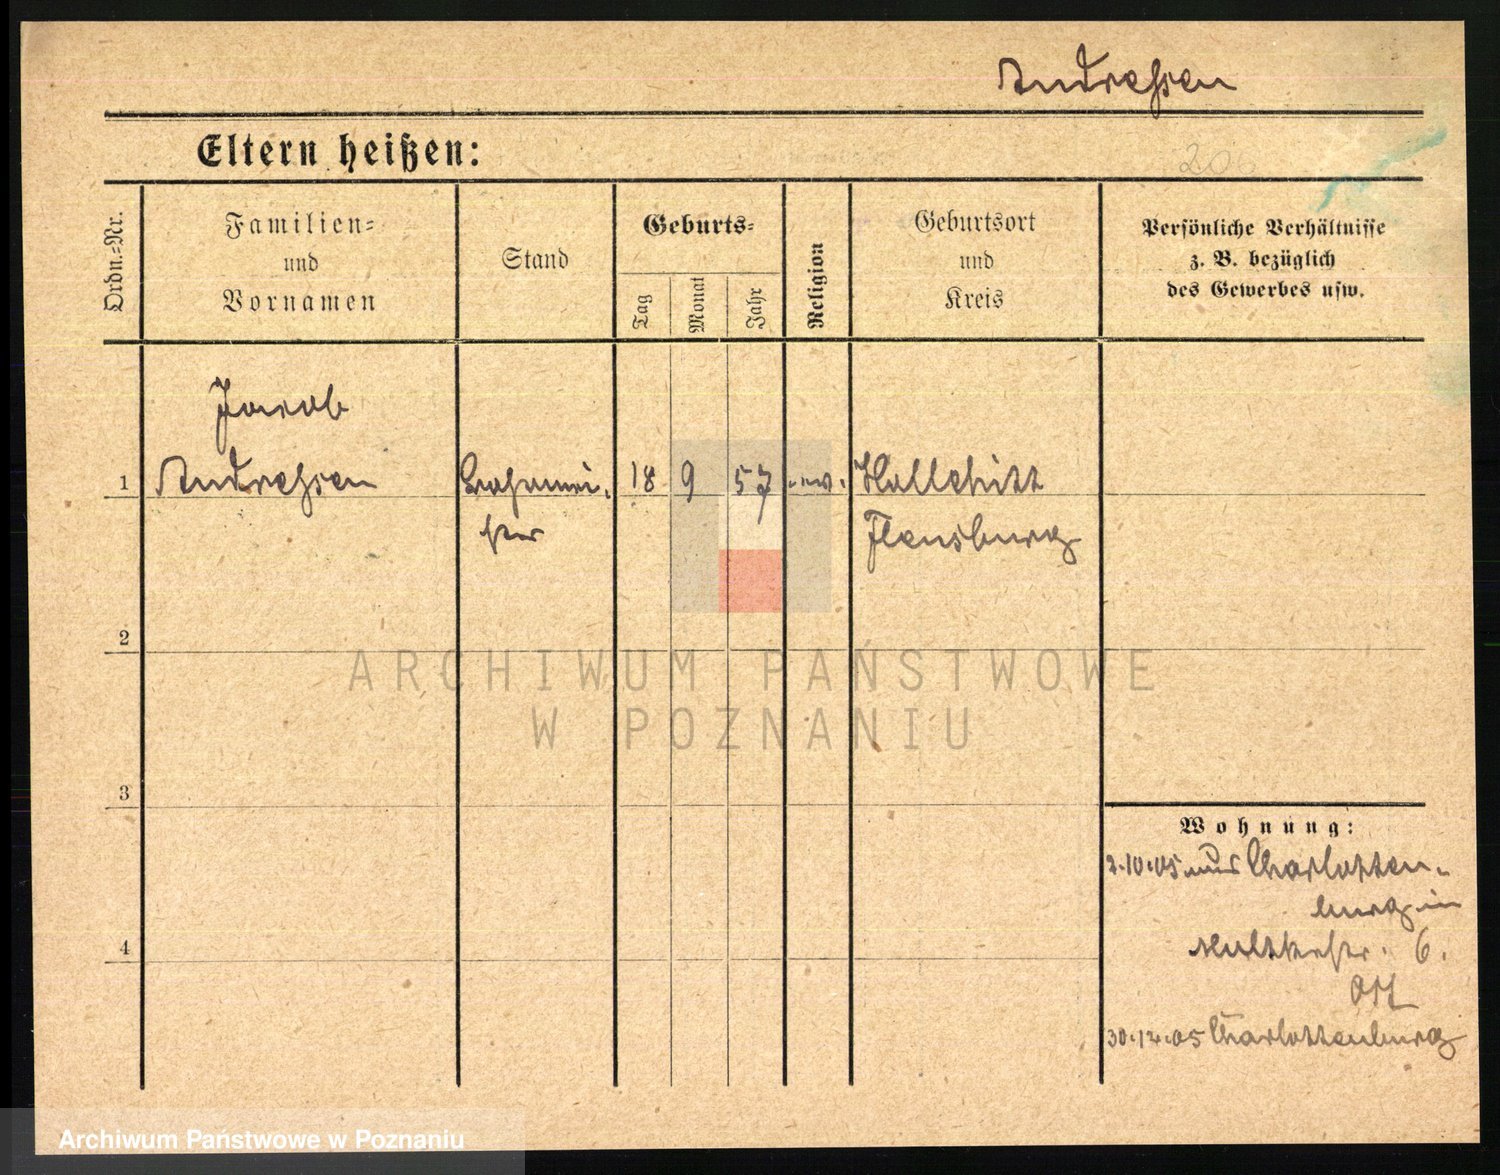 Andresen
Eltern heißen:
206
Ordn.-Nr.
Familien-
und
Vornamen
Stand
Geburts-
Tag
Monat
Jahr
Religion
Geburtsort
und
Kreis
Persönliche Verhältnisse
z. B. bezüglich
des Gewerbes usw.
Jacob
1 Andresen 18 9 57 ev.
Flensburg
2
ARCHIWUM PAŃSTWOWE
W POZNANIU
3
Wohnung:
2.10.05 aus Charlotten-
burg in
6.
4
30.12.05 Charlottenburg
Archiwum Państwowe w Poznaniu